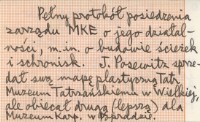 Pełny protokół posiedzenia
zarządu MKE o jego działal-
ności, m.in. o budowie ścieżek
i schronisk. J. Posewitz sprze-
dał swą mapę plastyczną Tatr
Muzeum Tatrzańskiemu w Wielkiej,
ale obiecał drugą (lepszą) dla
Muzeum Karp. w Popradzie.